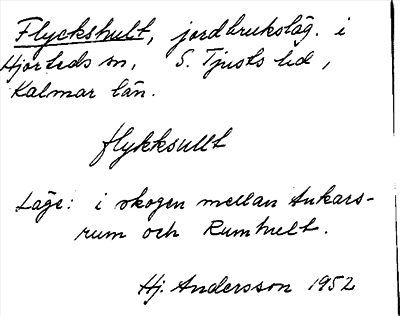 Flyckshult, jordbruksläg. i
Hjorteds sn, S. Tjusts hd,
Kalmar län.
flykksullt
Läge: i skogen mellan Ankars-
rum och Rumhult.
Hj. Andersson 1952